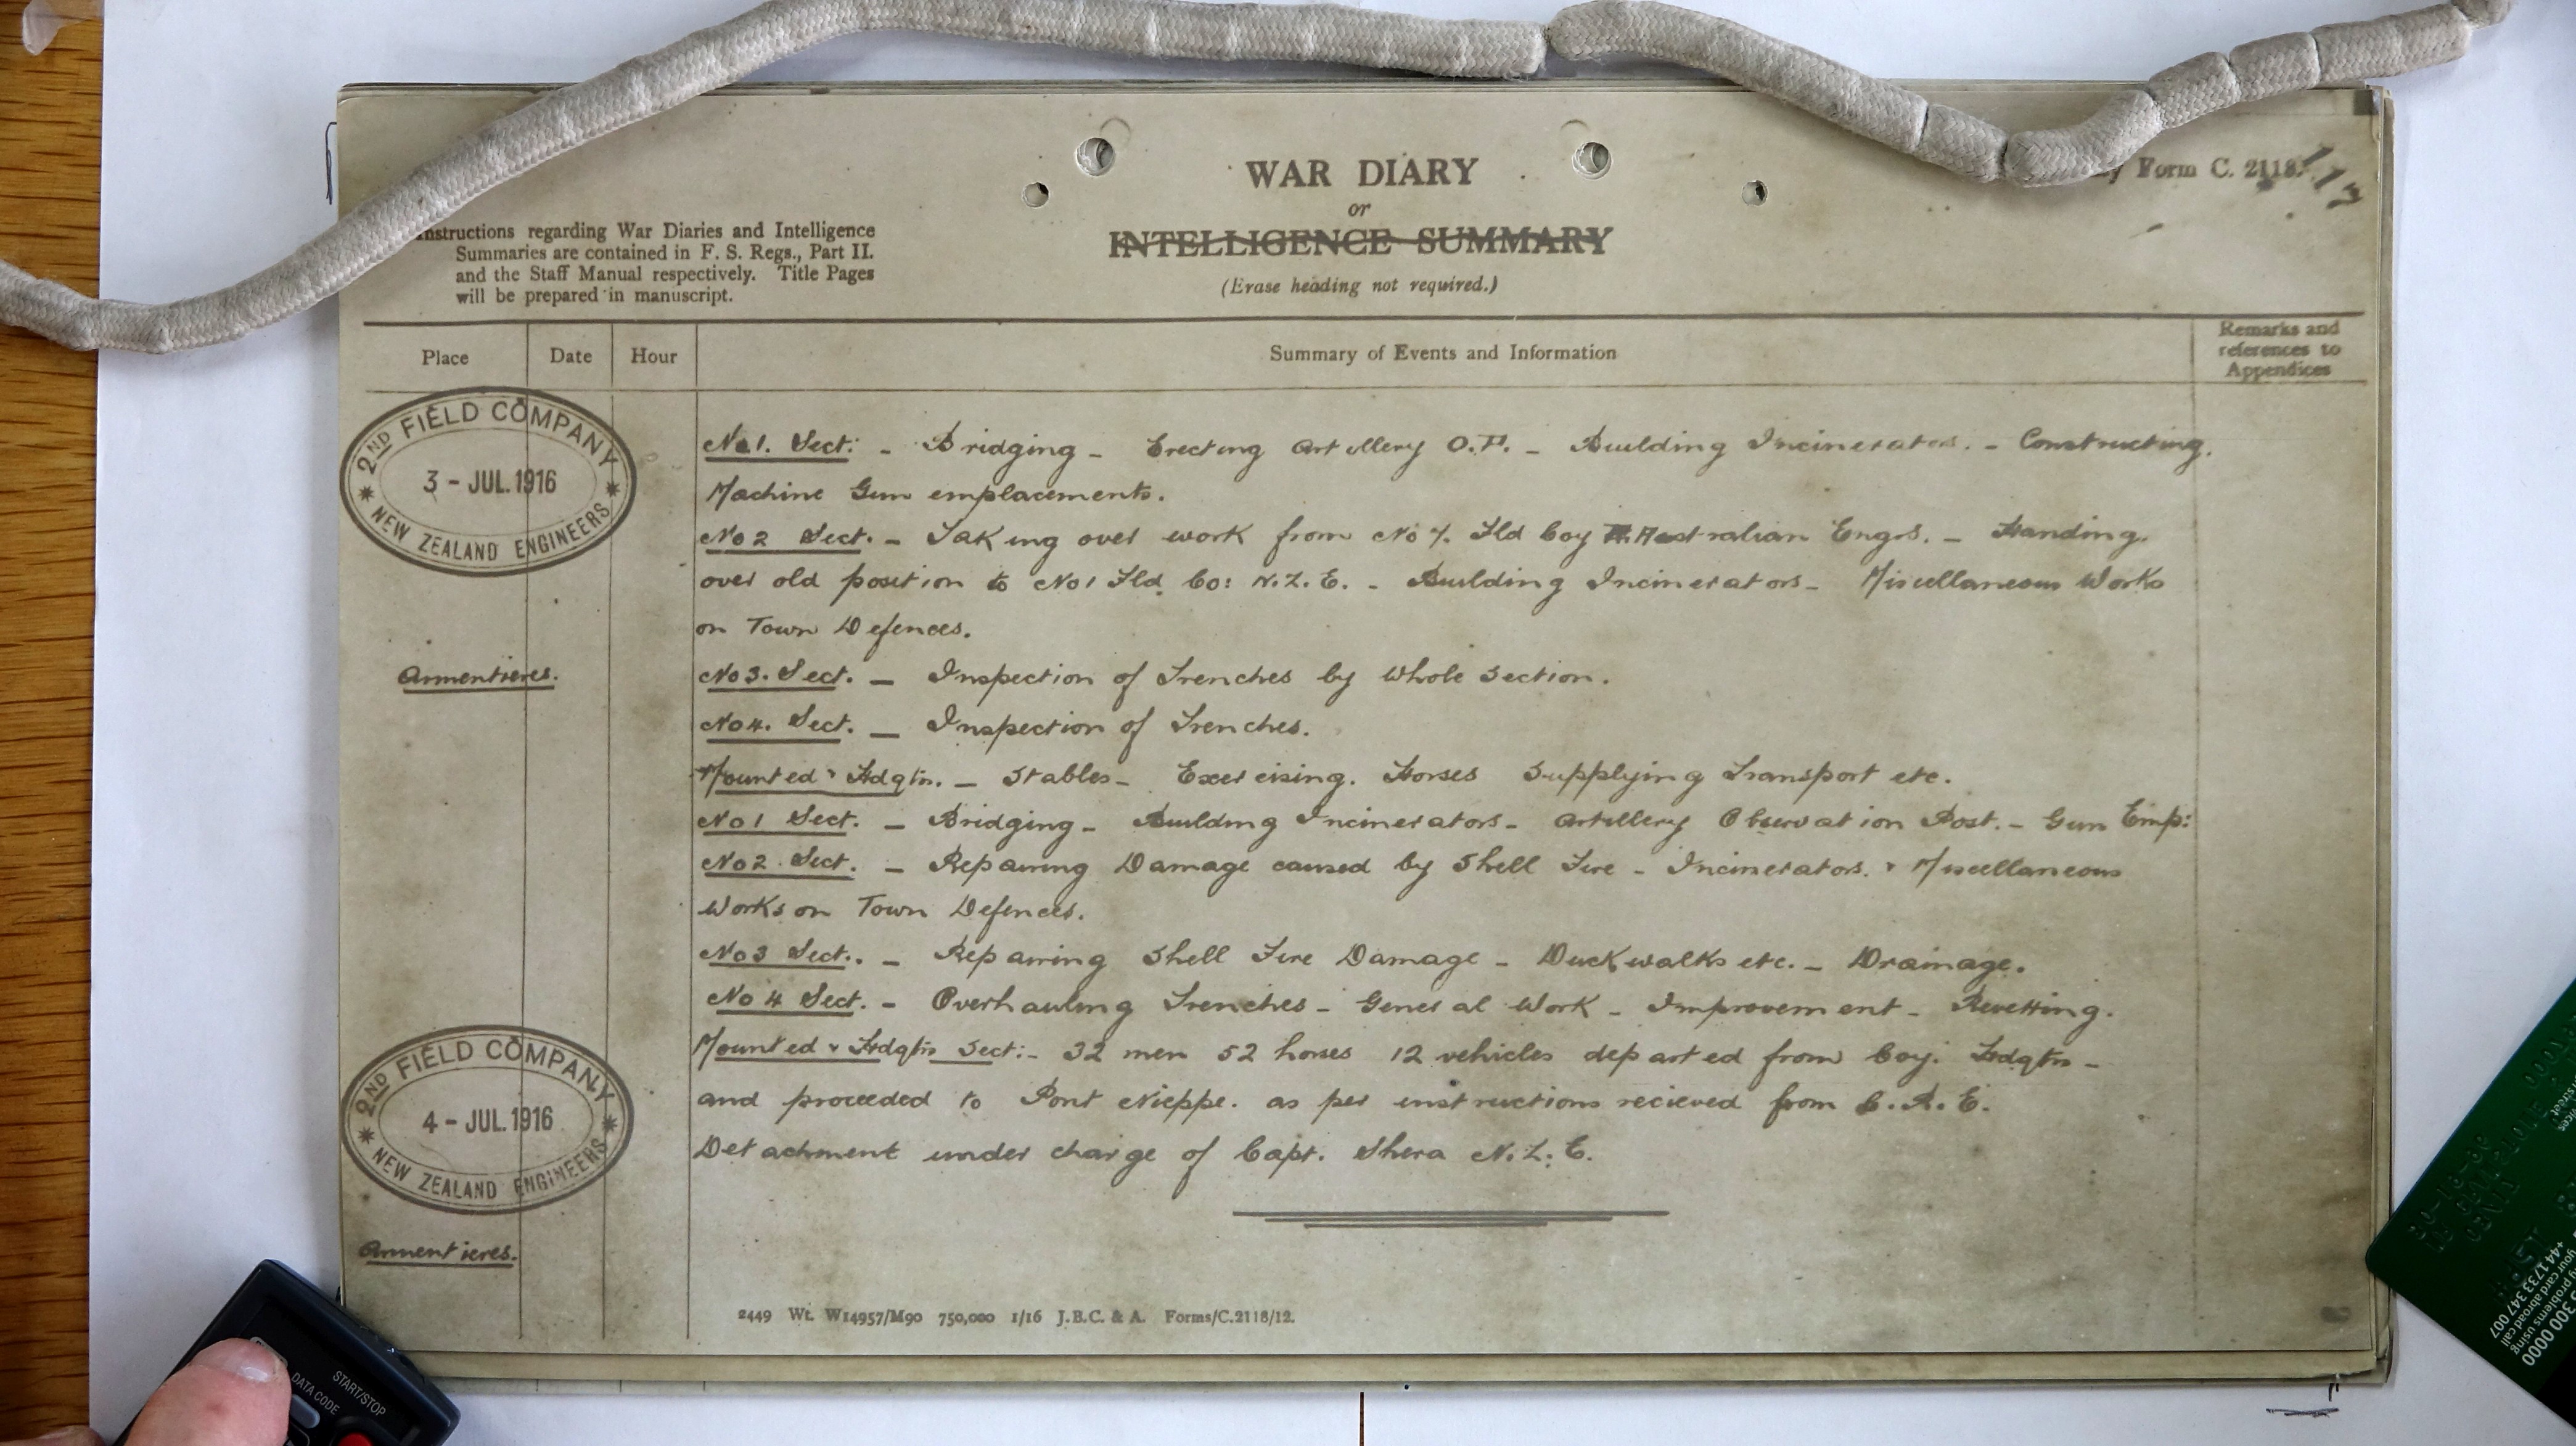 WAR DIARY
or
INTELLIGENCE SUMMARY
(Erase heading not required.)
Form C. 2118.
113
Instructions regarding War Diaries and Intelligence
Summaries are contained in F. S. Regs., Part II.
and the Staff Manual respectively. Title Pages
will be prepared in manuscript.
Place
Date
Hour
Summary of Events and Information
Remarks and
references to
Appendices
2ND FIELD COMPANY
3 - JUL. 1916
NEW ZEALAND ENGINEERS
No 1. Sect: - Bridging - Erecting Artillery O.P. - Building Incinerators. - Constructing.
Machine Gun emplacements.
No 2 Sect. - Taking over work from No 7. Fld Coy Australian Engrs. - Handing.
over old position to No 1 Fld. Co: N.Z.E. - Building Incinerators - Miscellaneous Works
on Town Defences.
Armentieres.
No 3. Sect. - Inspection of Trenches by whole section.
No 4. Sect. - Inspection of Trenches.
Mounted & Hdqtrs. - Stables - Exercising. Horses Supplying Transport etc.
No 1 Sect. - Bridging - Building Incinerators - Artillery Observation Post. - Gun Emp:
No 2. Sect. - Repairing Damage caused by Shell Fire - Incinerators. & Miscellaneous
Works on Town Defences.
No 3 Sect.. - Repairing Shell Fire Damage - Duckwalks etc. - Drainage.
No 4 Sect. - Overhauling Trenches - General Work - Improvement - Revetting.
2ND FIELD COMPANY
4 - JUL. 1916
NEW ZEALAND ENGINEERS
Mounted & Hdqtrs Sect: - 32 men 52 horses 12 vehicles departed from Coy. Hdqtrs -
and proceeded to Pont Nieppe. as per instructions recieved from C.R.E.
Detachment under charge of Capt. Shera N.Z.E.
Armentieres.
2449 Wt. W14957/M90 750,000 1/16 J.B.C. & A. Forms/C.2118/12.
DATA CODE
START/STOP
+44 1733 347 007